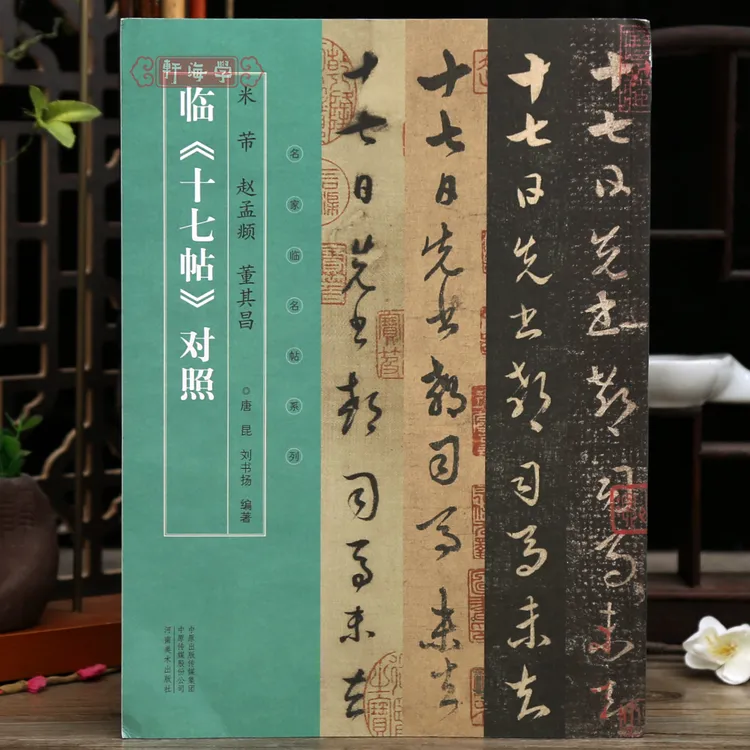 學海軒
十七日先書郗司馬未去
十七日先書郗司馬未去
十七日先書郗司馬未去
十七日先書郗司馬未去
名家临名帖系列
米芾 赵孟頫 董其昌 ◎唐昆 刘书扬 编著
临《十七帖》对照
中原出版传媒集团
中原传媒股份公司
河南美术出版社